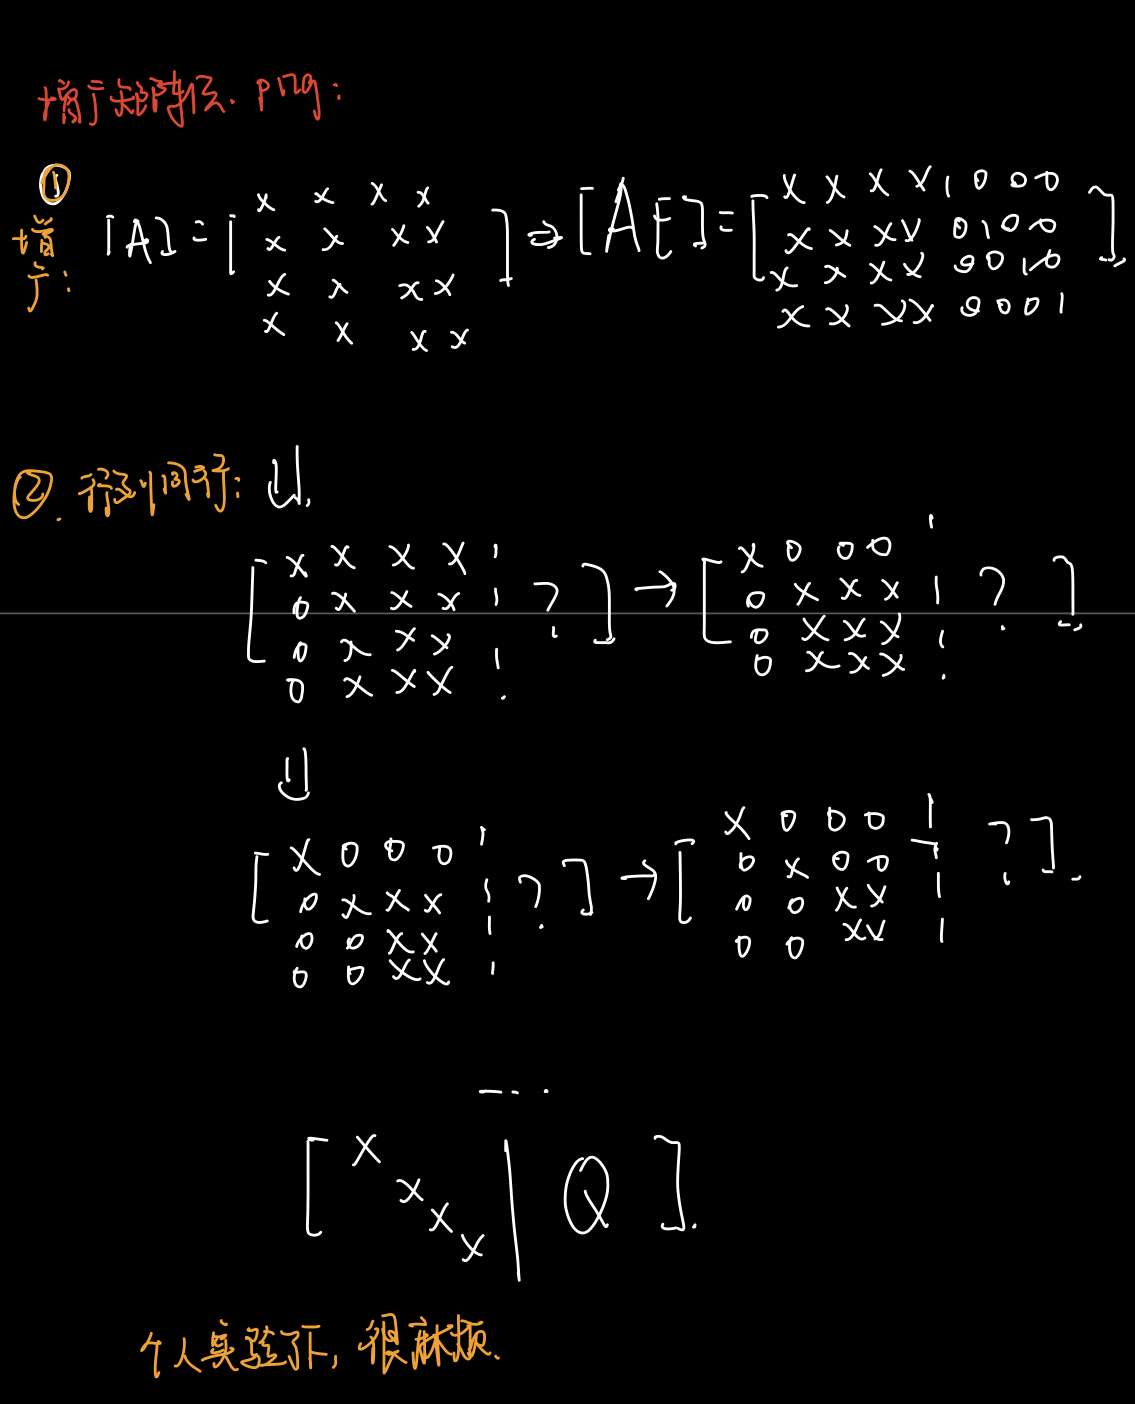 增广矩阵法.png:
①
增广:
[A]=[
x x x x
x x x x
x x x x
x x x x
]⇒[A E]=[
x x x x 1 0 0 0
x x x x 0 1 0 0
x x x x 0 0 1 0
x x x x 0 0 0 1
],
②. 行列同行: ⇓
[
x x x x
0 x x x
0 x x x
0 x x x
| ? ] → [
x 0 0 0
0 x x x
0 x x x
0 x x x
| ? ],
⇓
[
x 0 0 0
0 x x x
0 0 x x
0 0 x x
| ? ] → [
x 0 0 0
0 x 0 0
0 0 x x
0 0 x x
| ? ].
...
[
x
x
x
x
| Q ].
个人实验了下, 很麻烦.